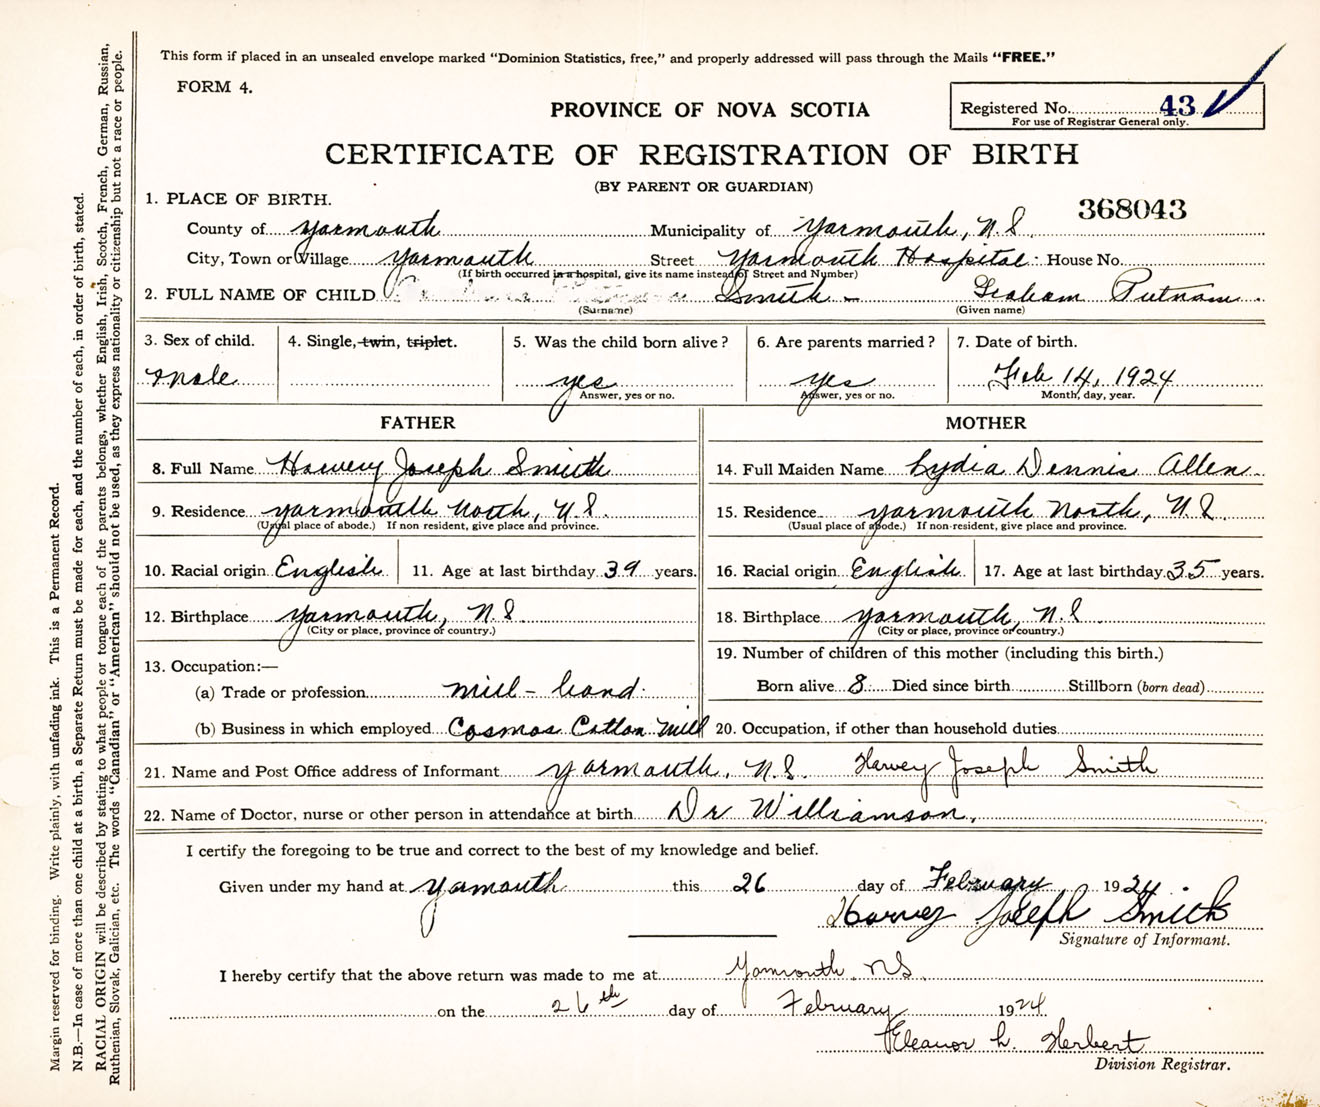 This form if placed in an unsealed envelope marked "Dominion Statistics, free," and properly addressed will pass through the Mails "FREE."
FORM 4.
PROVINCE OF NOVA SCOTIA
Registered No. 43
For use of Registrar General only.
CERTIFICATE OF REGISTRATION OF BIRTH
(BY PARENT OR GUARDIAN)
368043
1. PLACE OF BIRTH.
County of Yarmouth Municipality of Yarmouth, N.S.
City, Town or Village Yarmouth Street Yarmouth Hospital House No.
(If birth occurred in a hospital, give its name instead of Street and Number)
2. FULL NAME OF CHILD Smith - Graham Putnam
(Surname) (Given name)
3. Sex of child. 4. Single, twin, triplet. 5. Was the child born alive? 6. Are parents married? 7. Date of birth.
male yes yes Feb 14, 1924
Answer, yes or no. Answer, yes or no. Month, day, year.
FATHER MOTHER
8. Full Name Harvey Joseph Smith 14. Full Maiden Name Lydia Dennis Allen
9. Residence Yarmouth North, N.S. 15. Residence Yarmouth North, N.S.
(Usual place of abode.) If non resident, give place and province. (Usual place of abode.) If non-resident, give place and province.
10. Racial origin English 11. Age at last birthday 39 years. 16. Racial origin English 17. Age at last birthday 35 years.
12. Birthplace Yarmouth, N.S 18. Birthplace Yarmouth, N.S
(City or place, province or country.) (City or place, province or country.)
13. Occupation:— 19. Number of children of this mother (including this birth.)
(a) Trade or profession mill-hand. Born alive 8. Died since birth Stillborn (born dead)
(b) Business in which employed Cosmos Cotton Mill 20. Occupation, if other than household duties
21. Name and Post Office address of Informant Yarmouth, N.S. Harvey Joseph Smith
22. Name of Doctor, nurse or other person in attendance at birth Dr Williamson.
I certify the foregoing to be true and correct to the best of my knowledge and belief.
Given under my hand at Yarmouth this 26 day of February 1924
Harvey Joseph Smith
Signature of Informant.
I hereby certify that the above return was made to me at Yarmouth N.S.
on the 26th day of February 1924
Eleanor L. Herbert
Division Registrar.
Margin reserved for binding. Write plainly, with unfading ink. This is a Permanent Record.
N.B.—In case of more than one child at a birth, a Separate Return must be made for each, and the number of each, in order of birth, stated.
RACIAL ORIGIN will be described by stating to what people or tongue each of the parents belongs, whether English, Irish, Scotch, French, German, Russian,
Ruthenian, Slovak, Galician, etc. The words "Canadian" or "American" should not be used, as they express nationality or citizenship but not a race or people.